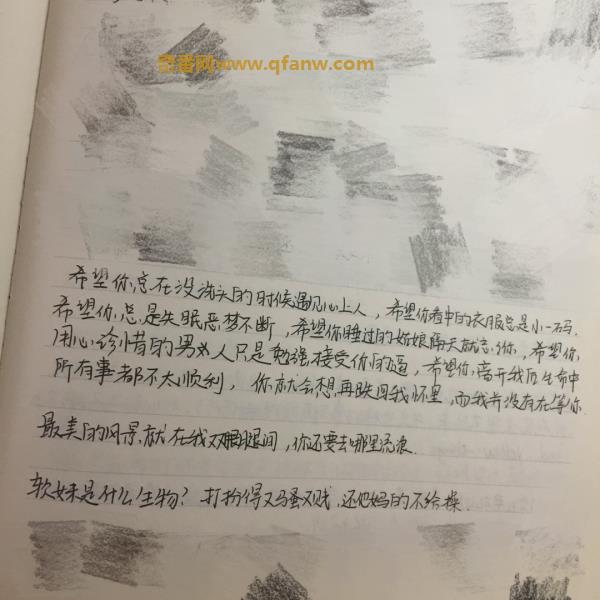 奇番网www.qfanw.com
希望你总在没洗头的时候遇见心上人，希望你看中的衣服总是小一码，
希望你总是失眠恶梦不断，希望你睡过的姑娘隔天就忘你，希望你
用心珍惜的男女人只是勉强接受你的逼，希望你离开我后生命中
所有事都不太顺利，你就会想再跌回我怀里，而我并没有在等你
最美的风景，就在我双眼腿间，你还要去哪里流浪
软妹是什么生物？打扮得又骚又贱，还他妈的不给操